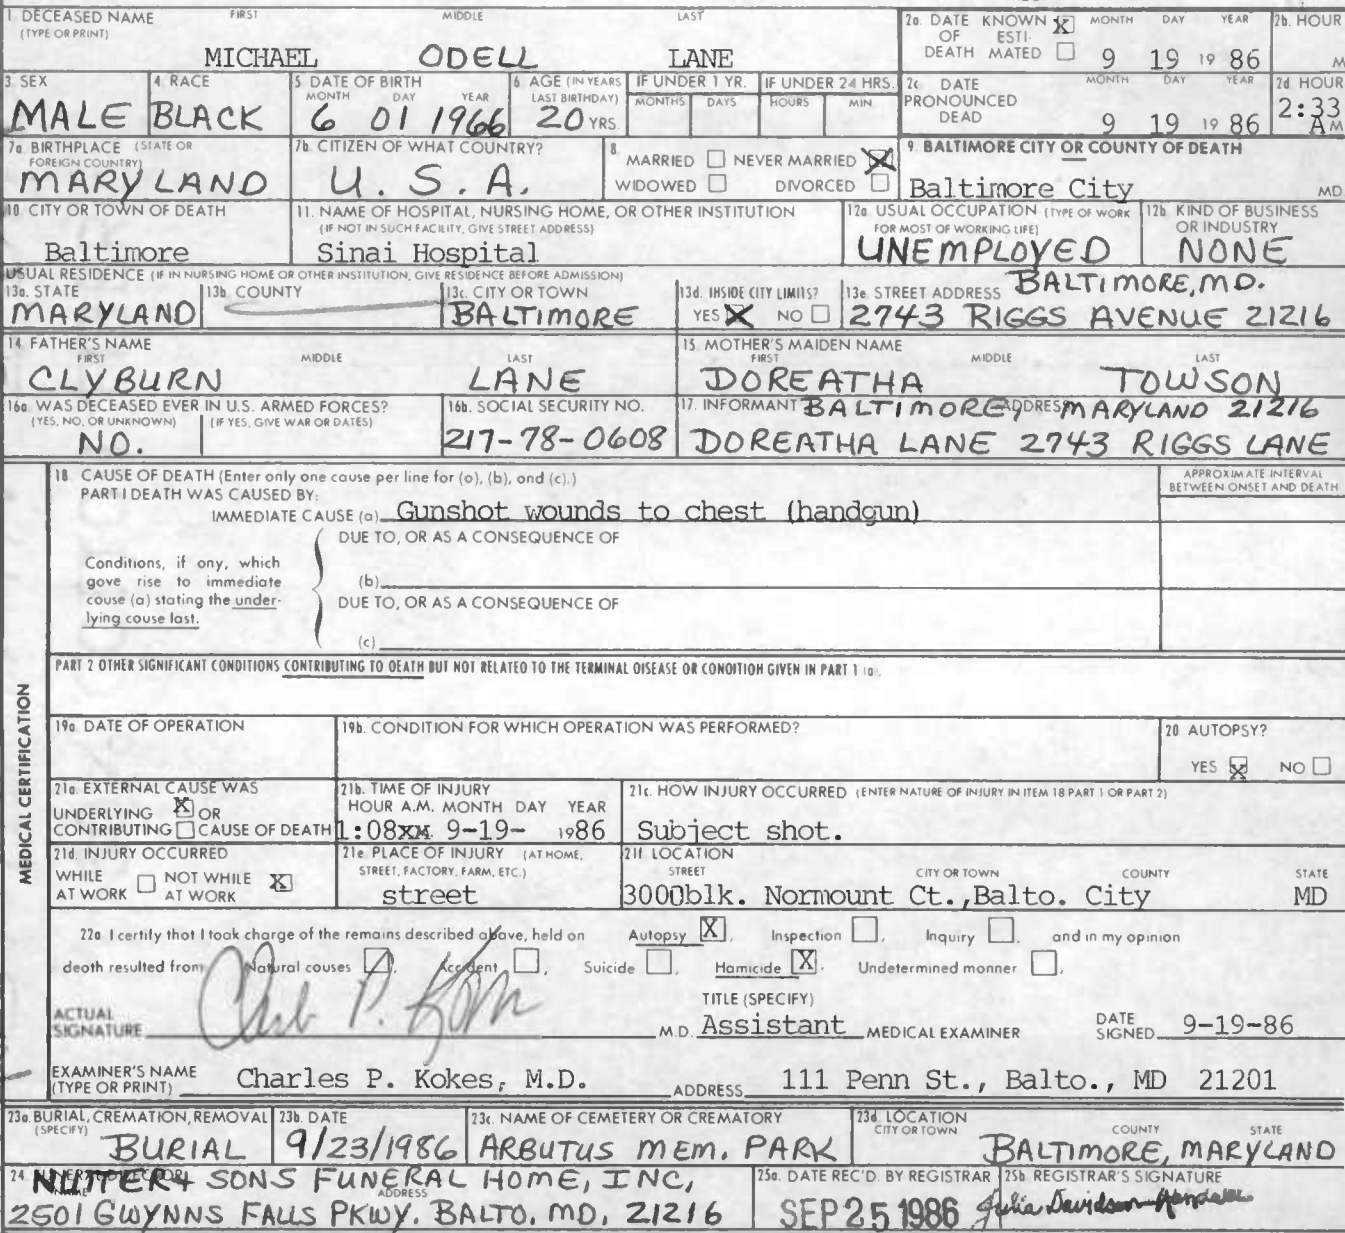 1 DECEASED NAME FIRST MIDDLE LAST
(TYPE OR PRINT)
MICHAEL ODELL LANE
2a. DATE KNOWN X MONTH DAY YEAR 2b. HOUR
OF ESTI-
DEATH MATED 9 19 19 86 M
3. SEX 4. RACE 5 DATE OF BIRTH 6 AGE (IN YEARS IF UNDER 1 YR. IF UNDER 24 HRS.
MONTH DAY YEAR LAST BIRTHDAY) MONTHS DAYS HOURS MIN
MALE BLACK 6 01 1966 20 YRS.
2c DATE MONTH DAY YEAR 2d HOUR
PRONOUNCED
DEAD 9 19 19 86 2:33 AM
7a. BIRTHPLACE (STATE OR
FOREIGN COUNTRY)
MARYLAND
7b. CITIZEN OF WHAT COUNTRY?
U.S.A.
8 MARRIED NEVER MARRIED X
WIDOWED DIVORCED
9 BALTIMORE CITY OR COUNTY OF DEATH
Baltimore City MD
10 CITY OR TOWN OF DEATH
Baltimore
11. NAME OF HOSPITAL, NURSING HOME, OR OTHER INSTITUTION
(IF NOT IN SUCH FACILITY, GIVE STREET ADDRESS)
Sinai Hospital
12a USUAL OCCUPATION (TYPE OF WORK
FOR MOST OF WORKING LIFE)
UNEMPLOYED
12b KIND OF BUSINESS
OR INDUSTRY
NONE
USUAL RESIDENCE (IF IN NURSING HOME OR OTHER INSTITUTION, GIVE RESIDENCE BEFORE ADMISSION)
13a. STATE 13b. COUNTY 13c. CITY OR TOWN 13d. INSIDE CITY LIMITS? 13e. STREET ADDRESS BALTIMORE, MD.
MARYLAND BALTIMORE YES X NO 2743 RIGGS AVENUE 21216
14. FATHER'S NAME
FIRST MIDDLE LAST
CLYBURN LANE
15 MOTHER'S MAIDEN NAME
FIRST MIDDLE LAST
DOREATHA TOWSON
16a. WAS DECEASED EVER IN U.S. ARMED FORCES?
(YES, NO, OR UNKNOWN) (IF YES, GIVE WAR OR DATES)
NO.
16b. SOCIAL SECURITY NO.
217-78-0608
17. INFORMANT BALTIMORE, ADDRESS MARYLAND 21216
DOREATHA LANE 2743 RIGGS LANE
MEDICAL CERTIFICATION
18 CAUSE OF DEATH (Enter only one cause per line for (a), (b), and (c).)
PART I DEATH WAS CAUSED BY:
IMMEDIATE CAUSE (a) Gunshot wounds to chest (handgun)
APPROXIMATE INTERVAL
BETWEEN ONSET AND DEATH
DUE TO, OR AS A CONSEQUENCE OF
Conditions, if any, which
gave rise to immediate
cause (a) stating the under-
lying cause last.
(b)
DUE TO, OR AS A CONSEQUENCE OF
(c)
PART 2 OTHER SIGNIFICANT CONDITIONS CONTRIBUTING TO DEATH BUT NOT RELATED TO THE TERMINAL DISEASE OR CONDITION GIVEN IN PART 1 (a).
19a DATE OF OPERATION 19b. CONDITION FOR WHICH OPERATION WAS PERFORMED? 20 AUTOPSY?
YES X NO
21a. EXTERNAL CAUSE WAS
UNDERLYING X OR
CONTRIBUTING CAUSE OF DEATH
21b. TIME OF INJURY
HOUR A.M. MONTH DAY YEAR
1:08XM 9-19- 1986
21c. HOW INJURY OCCURRED (ENTER NATURE OF INJURY IN ITEM 18 PART 1 OR PART 2)
Subject shot.
21d. INJURY OCCURRED
WHILE NOT WHILE X
AT WORK AT WORK
21e. PLACE OF INJURY (AT HOME,
STREET, FACTORY, FARM, ETC.)
street
21f. LOCATION
STREET CITY OR TOWN COUNTY STATE
3000blk. Normount Ct.,Balto. City MD
22a I certify that I took charge of the remains described above, held on Autopsy X, Inspection, Inquiry, and in my opinion
death resulted from Natural causes, Accident, Suicide, Homicide X. Undetermined manner,
TITLE (SPECIFY)
ACTUAL
SIGNATURE Charles P. Kokes M.D. Assistant MEDICAL EXAMINER DATE
SIGNED 9-19-86
EXAMINER'S NAME
(TYPE OR PRINT) Charles P. Kokes, M.D. ADDRESS 111 Penn St., Balto., MD 21201
23a. BURIAL, CREMATION, REMOVAL 23b. DATE 23c. NAME OF CEMETERY OR CREMATORY 23d LOCATION
(SPECIFY) CITY OR TOWN COUNTY STATE
BURIAL 9/23/1986 ARBUTUS MEM. PARK BALTIMORE, MARYLAND
24. NUTTER & SONS FUNERAL HOME, INC,
NAME ADDRESS
2501 GWYNNS FALLS PKWY. BALTO. MD. 21216
25a. DATE REC'D. BY REGISTRAR 25b. REGISTRAR'S SIGNATURE
SEP 25 1986 Julia Davidson-Randall